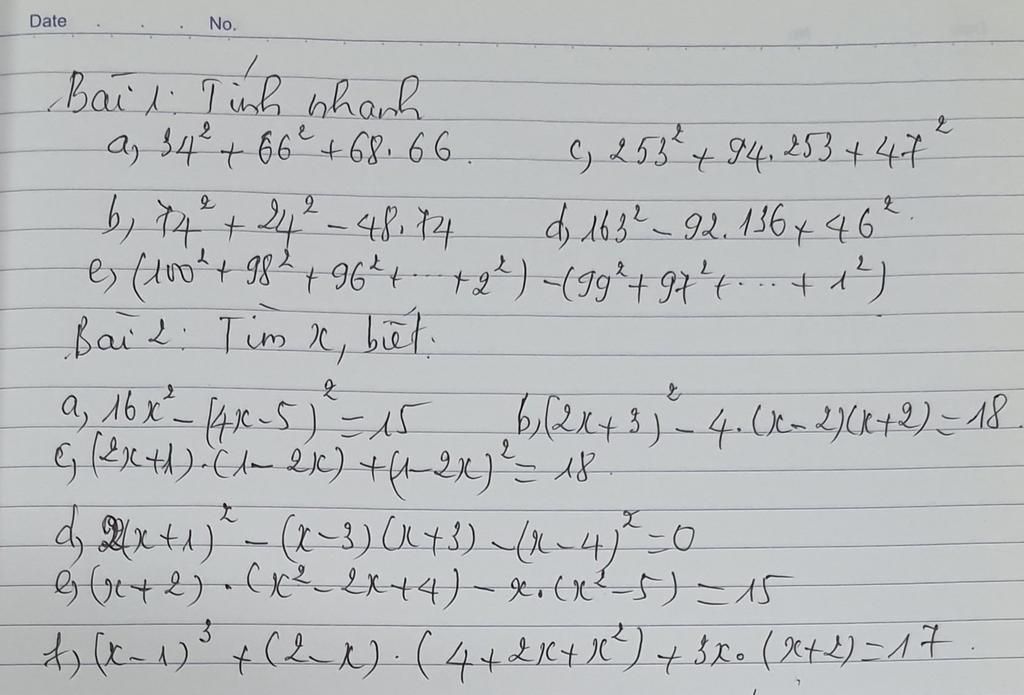 Date . . . No.
Bài 1: Tính nhanh
a, 34² + 66² + 68.66. c, 253² + 94.253 + 47²
b, 74² + 24² - 48.74 d, 163² - 92.136 + 46².
e, (100² + 98² + 96² + ... + 2²) - (99² + 97² + ... + 1²)
Bài 2: Tìm x, biết:
a, 16x² - (4x-5)² = 15 b, (2x+3)² - 4.(x-2)(x+2) = 18.
c, (2x+1).(1-2x) + (1-2x)² = 18.
d, 2(x+1)² - (x-3)(x+3) - (x-4)² = 0
e, (x+2).(x²-2x+4) - x.(x²-5) = 15
f, (x-1)³ + (2-x).(4+2x+x²) + 3x.(x+2) = 17.